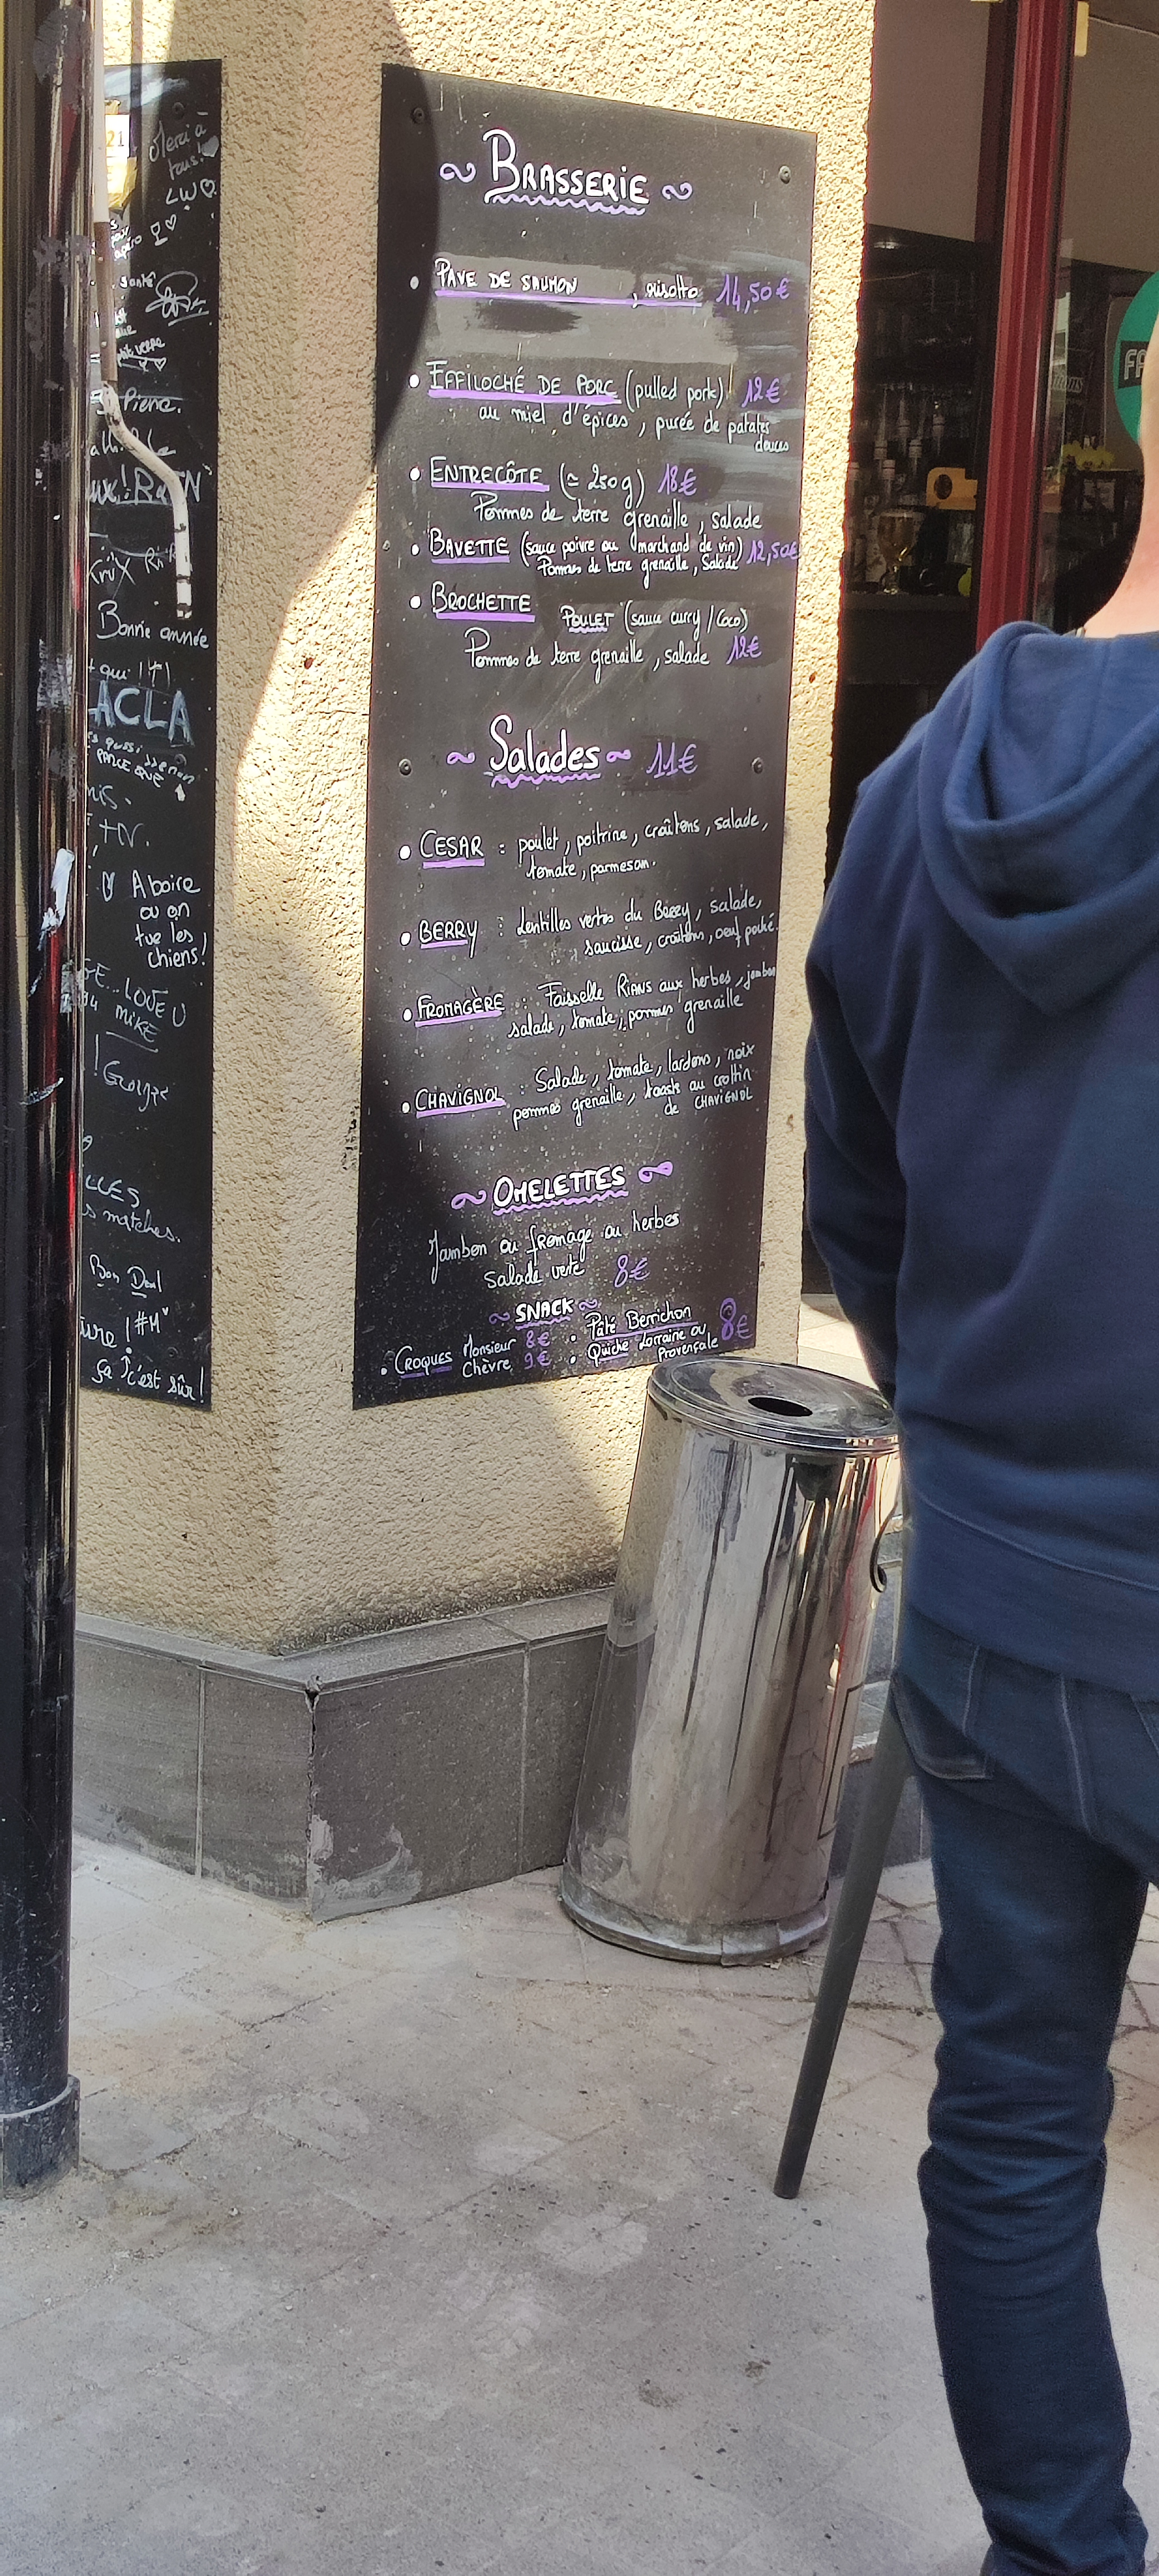 Merci à
tous!
santé
Pierre.
Bonne année
+ qui !
ACLA
PARCE QUE
+N.
A boire
ou on
tue les
chiens!
LOVE U
MIKE
s matches.
Bon Deal
#M
ça c'est sûr!
BRASSERIE
• PAVE DE SAUMON , risotto 14,50€
• EFFILOCHÉ DE PORC (pulled pork) 12€
au miel d'épices, purée de patates
douces
• ENTRECÔTE (≃ 250g) 18€
Pommes de terre grenaille, salade
• BAVETTE (sauce poivre ou marchand de vin) 12,50€
Pommes de terre grenaille, Salade
• BROCHETTE POULET (sauce curry/Coco)
Pommes de terre grenaille, salade 12€
Salades 11€
• CESAR : poulet, poitrine, croûtons, salade,
tomate, parmesan.
• BERRY : Lentilles vertes du Berry, salade,
saucisse, croûtons, oeuf poché.
• FROMAGÈRE : Faisselle RIANS aux herbes, jambon
salade, tomate, pommes grenaille
• CHAVIGNOL : Salade, tomate, lardons, noix
pommes grenaille, toasts au crottin
de CHAVIGNOL
OMELETTES
Jambon ou fromage ou herbes
Salade verte 8€
SNACK
• CROQUES Monsieur 8€ • Pâté Berrichon 8€
Chèvre 9€ • Quiche Lorraine ou
Provençale